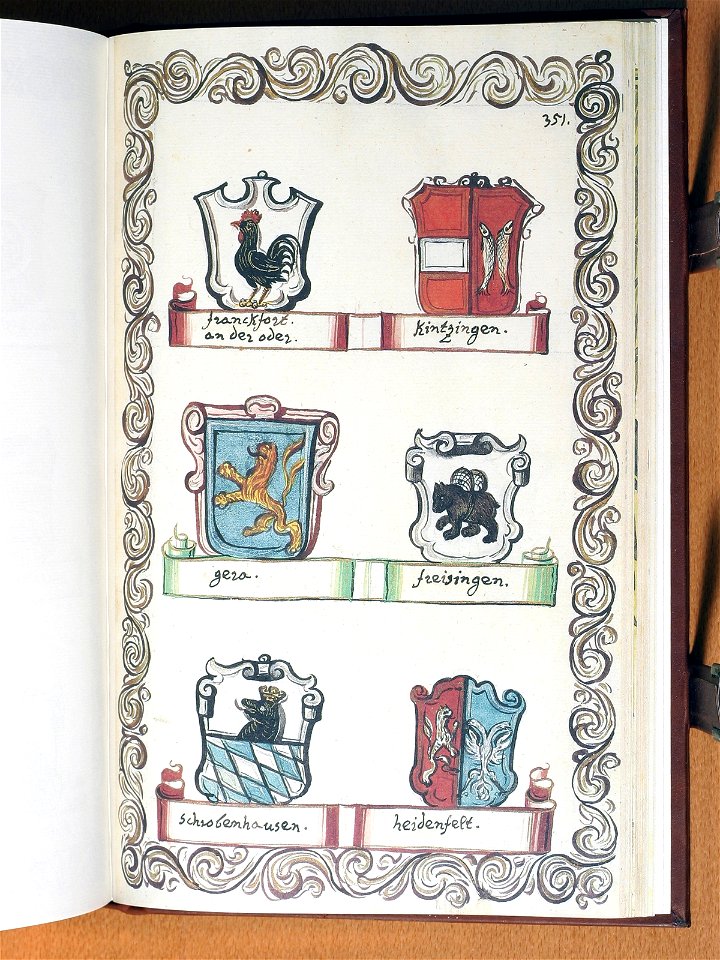 351.
franckfort.
an der oder.
Kintzingen.
gera.
freisingen.
schrobenhausen.
heidenfelt.